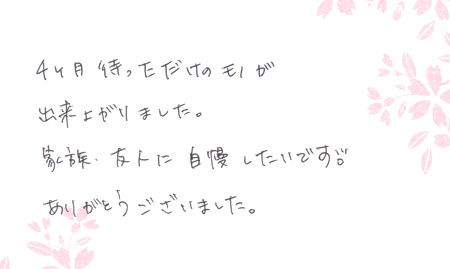 4ヶ月待っただけのモノが
出来上がりました。
家族・友人に自慢したいです。
ありがとうございました。